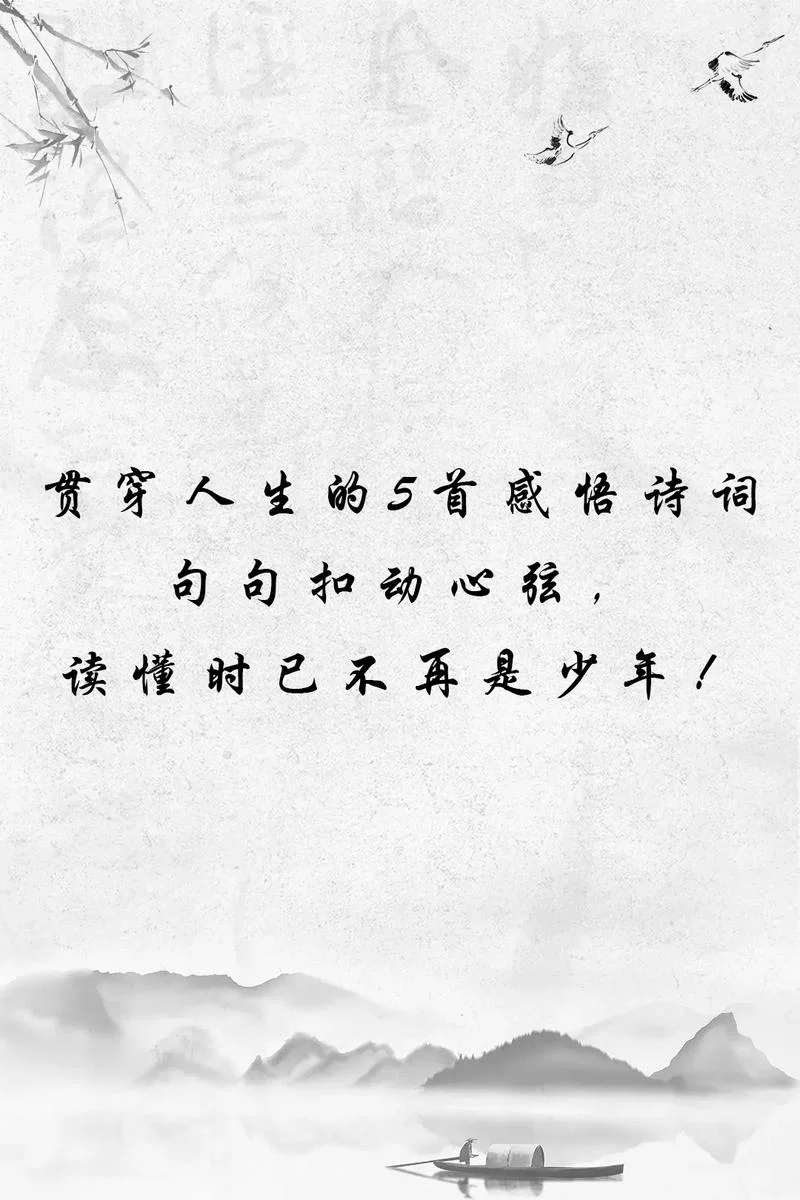 贯穿人生的5首感悟诗词
句句扣动心弦,
读懂时已不再是少年!